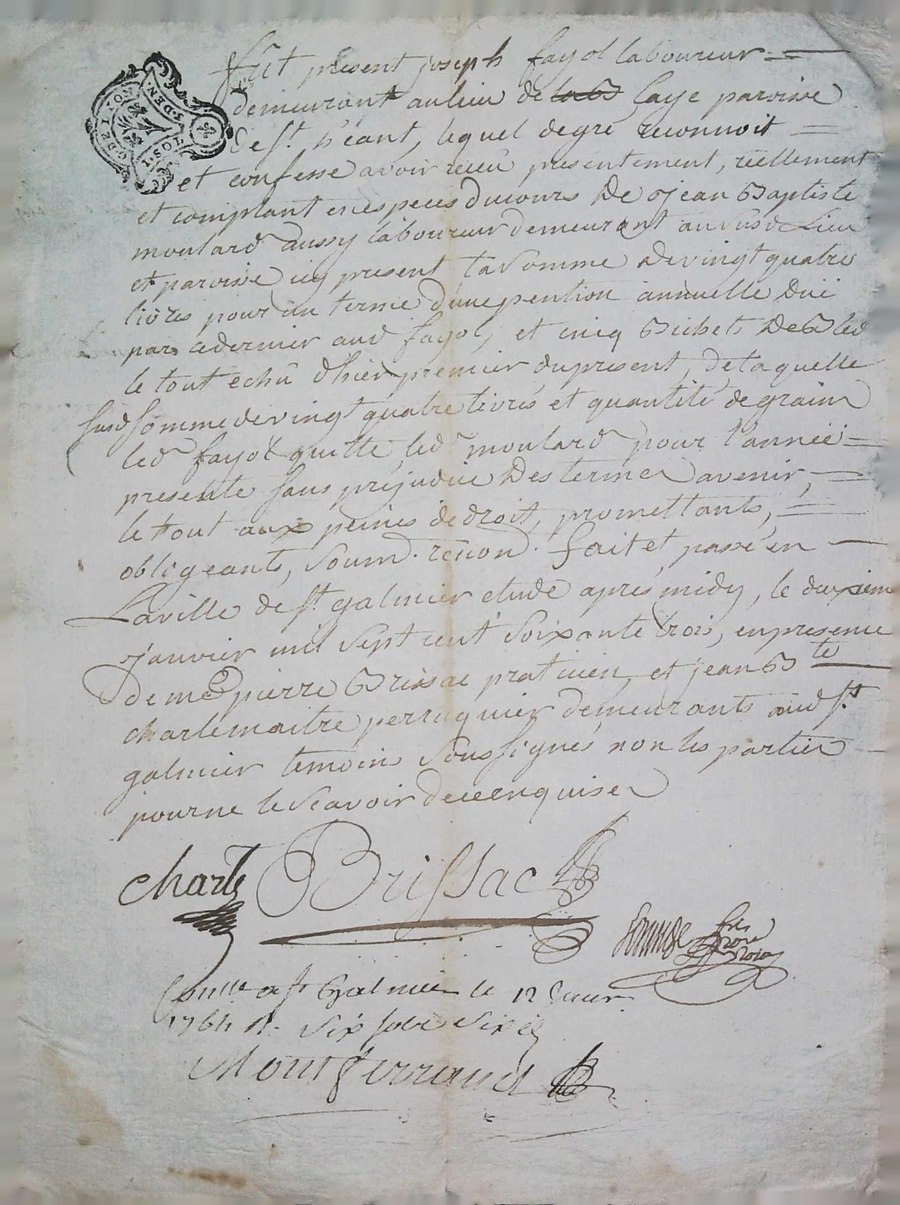 fût present joseph fayol laboureur
demeurant au lieu de laye paroisse
de st. héant, lequel de gré reconnoit
et confesse avoir receu presentement, réellement
et comptant en especes du cours de jean Baptiste
moulard aussy laboureur demeurant au susd. Lieu
et paroisse icy present la somme de vingt quatre
livres pour un terme d'une pention annuelle due
par ce dernier aud. fayol, et cinq Bichets de Bled
le tout echû d'hier premier du present, de laquelle
susd. somme de vingt quatre livres et quantité de grain
led. fayol quitte led. moulard pour l'année
presente sans prejudice des termes avenir,
le tout aux peines de droit, promettants,
obligeants, soum. renon. fait et passé en
La ville de st. galmier etude après midy, le deuxieme
janvier mil sept cent soixante trois, en presence
de me pierre Brissac praticien, et jean Bte
charle maitre perruquier demeurants aud. st.
galmier temoins soussignés non les parties
pour ne le scavoir de ce enquises
charle Brissac
a st Galmier le 12
1764 R. six sols six
Montferrand